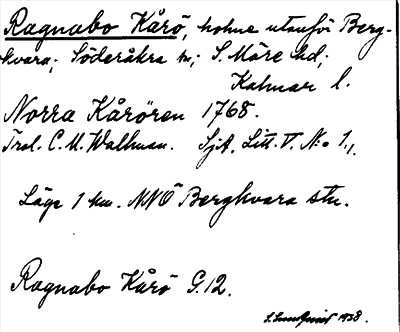 Ragnabo Kårö, holme utanför Berg-
kvara; Söderåkra sn; S. Möre hd;
Kalmar l.
Norra Kårören 1768.
Trol. C. U. Wallman. SjA. Litt. V. No 1.
Läge 1 km. NNÖ Bergkvara stn.
Ragnabo Kårö G.12.
S. Lundquist 1938.